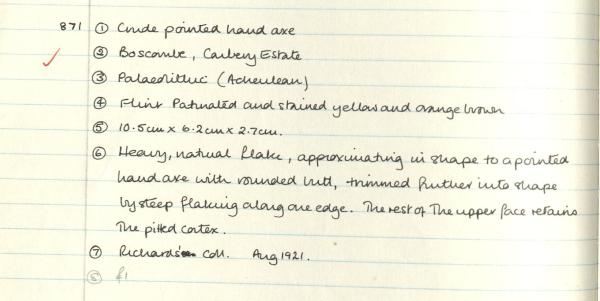 871 ① Crude pointed hand axe
② Boscombe, Carbery Estate
③ Palaeolithic (Acheulean)
④ Flint Patinated and stained yellow and orange brown
⑤ 10.5cm x 6.2cm x 2.7cm.
⑥ Heavy, natural flake, approximating in shape to a pointed
hand axe with rounded butt, trimmed further into shape
by steep flaking along one edge. The rest of The upper face retains
The pitted cortex.
⑦ Richards Coll. Aug 1921.
⑧ £1